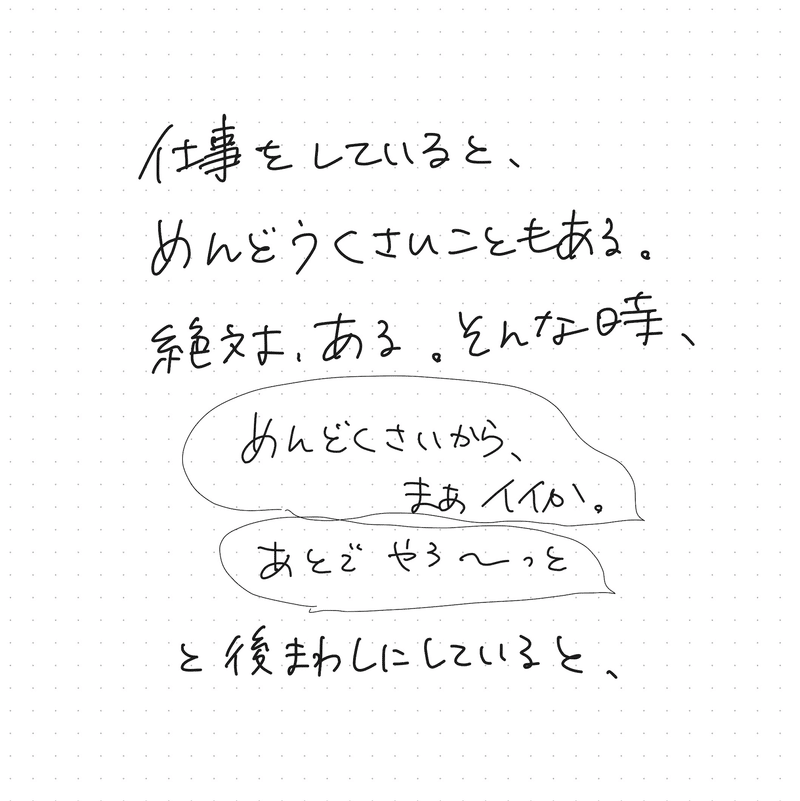 仕事をしていると、
めんどうくさいこともある。
絶対、ある。そんな時、
めんどくさいから、
まぁイイか。
あとでやろ〜っと
と後まわしにしていると、